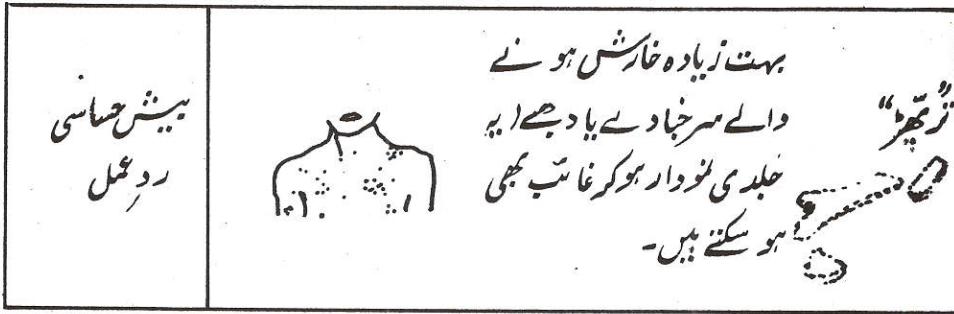 بہت زیادہ خارش ہونے
والے سرخبادے یا دھبے (یہ
جلدی نمودار ہوکر غائب بھی
ہو سکتے ہیں۔
بیش حساسی
ردِعمل